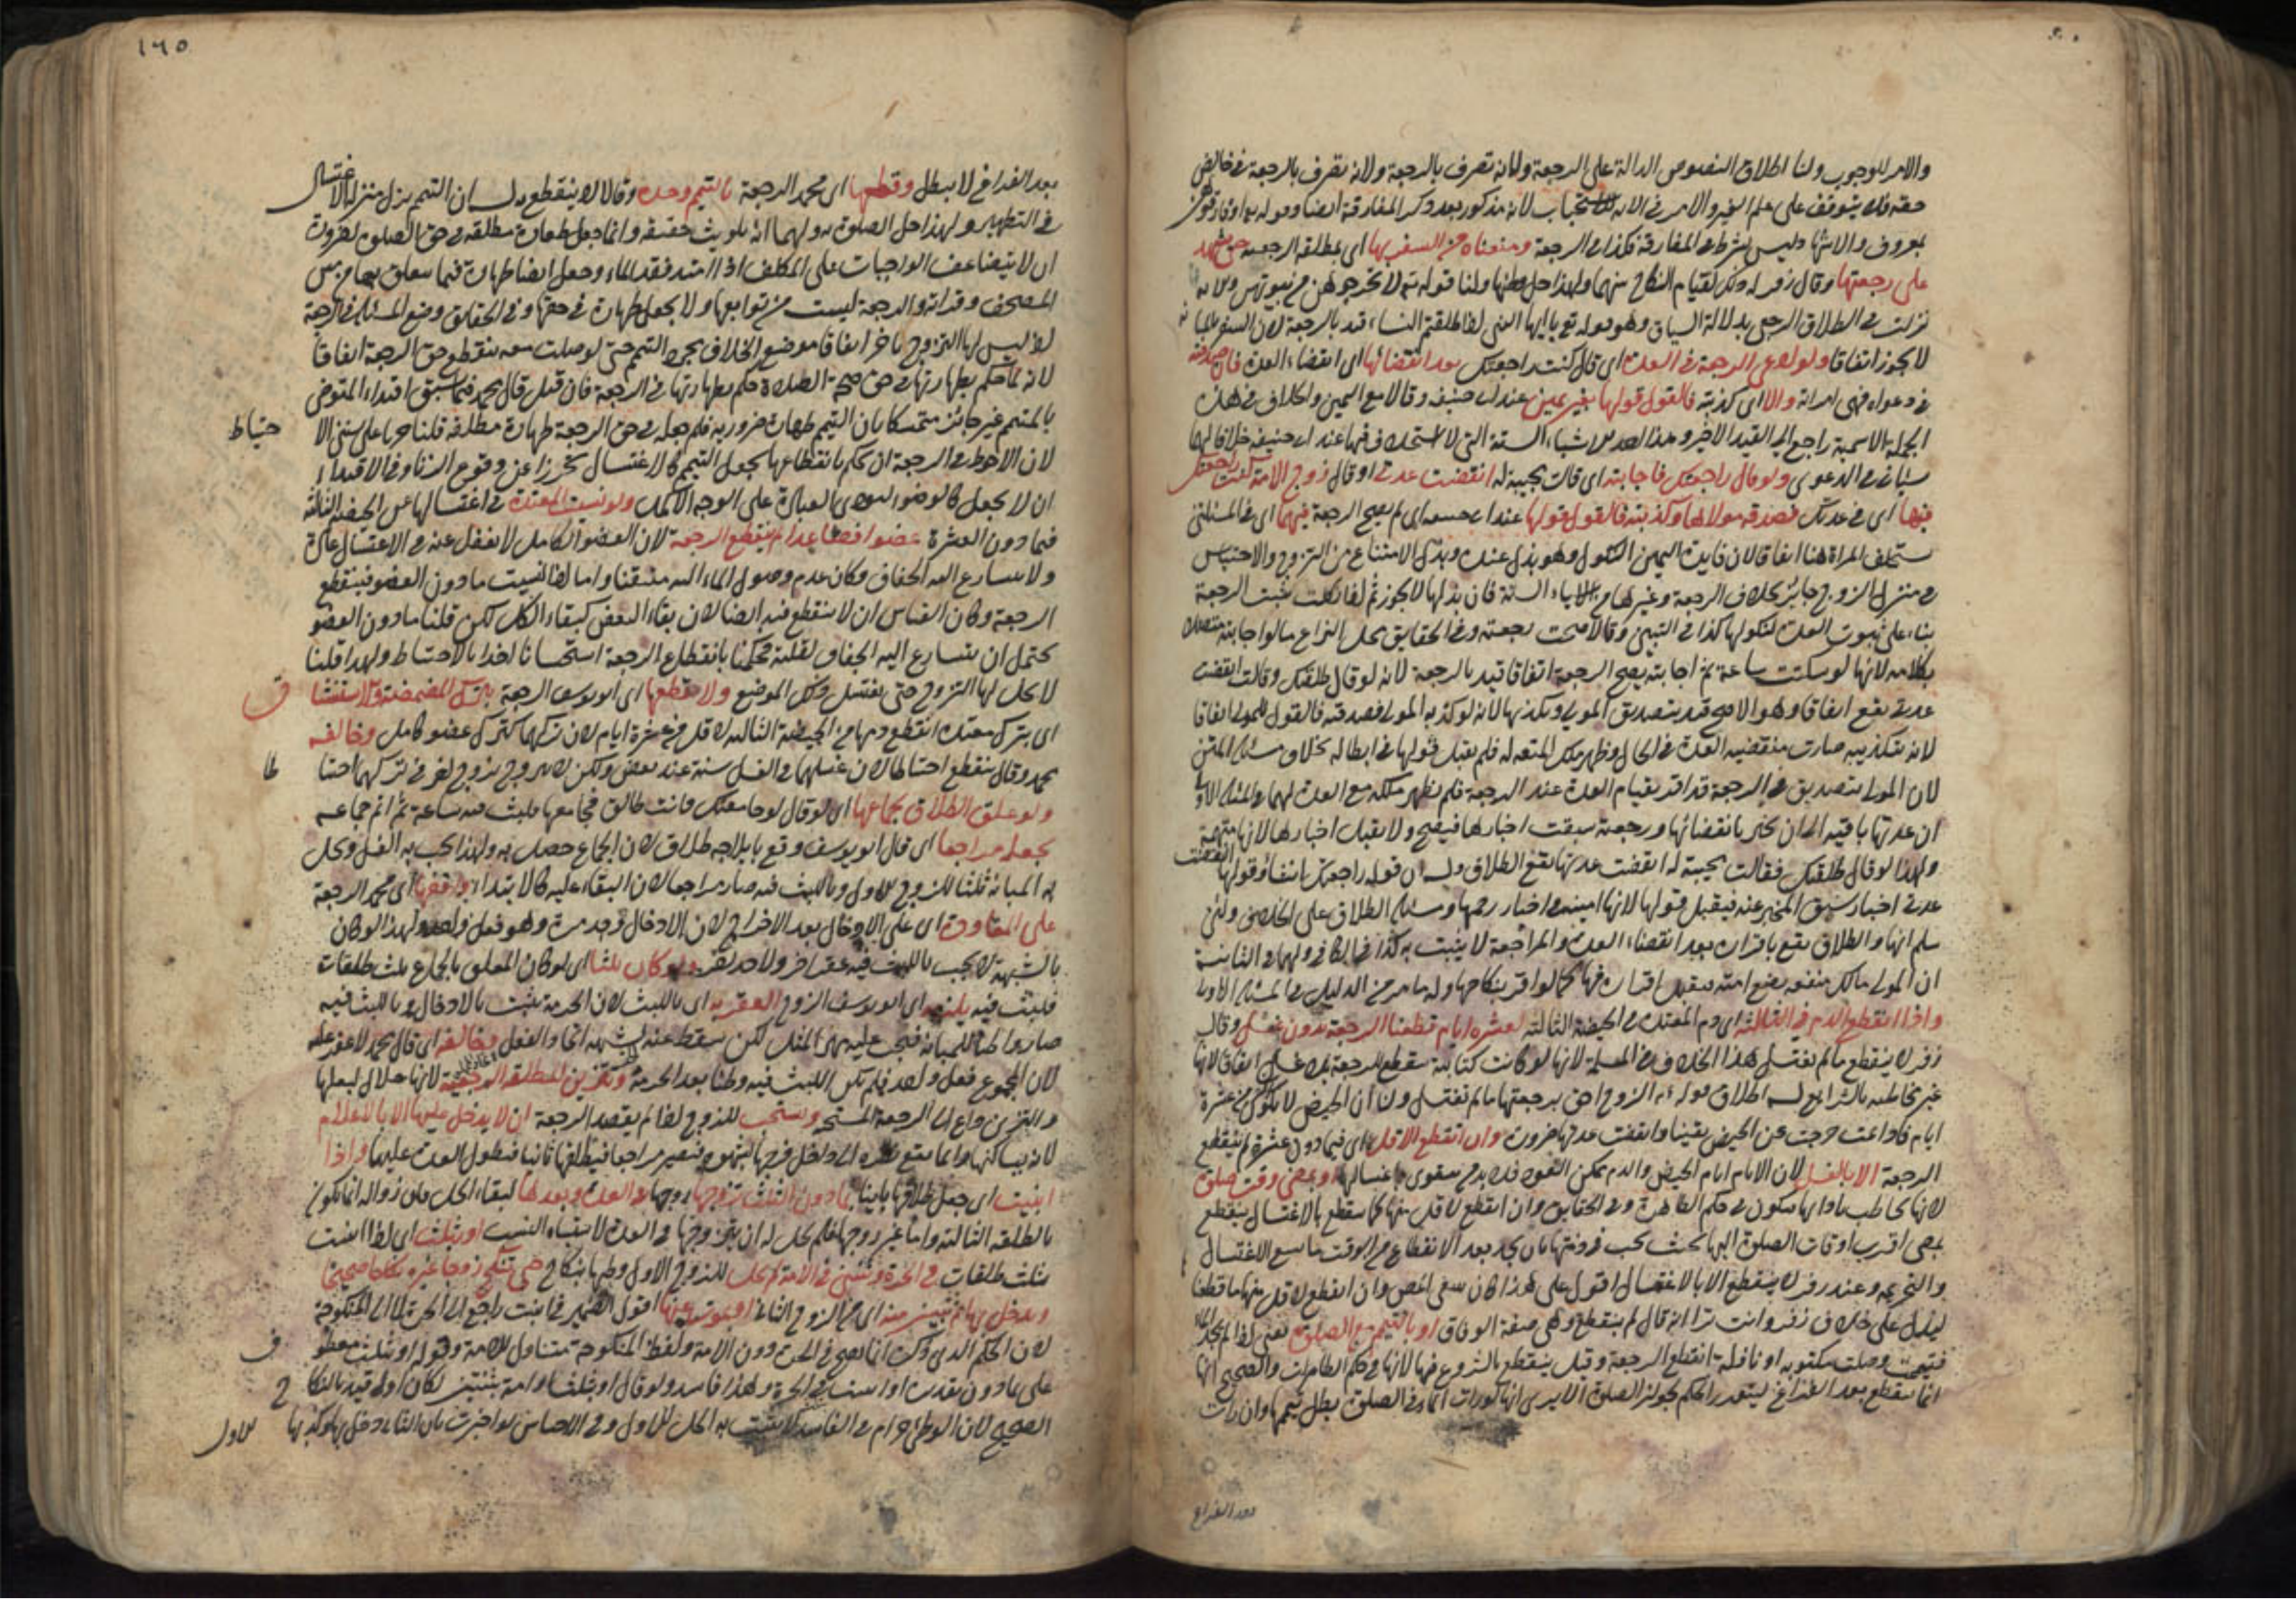 والامر للوجوب ولنا اطلاق النصوص الدالة على الرجعة ولانه تصرف بالرجعة ولانه تصرف بالرجعة في خالص
حقه فلا يتوقف على علم الغير والامر في الاية للاستحباب لانه مذكور بعد ذكر المفارقة ايضا وهو قوله او فارقوهن
بمعروف والاشهاد ليس بشرط في المفارقة فكذا في الرجعة ومنعناه من السفر بها اى بمطلقه الرجعية حتى يشهد
على رجعتها وقال زفر له ذلك لقيام النكاح بينهما ولهذا حل وطئها ولنا قوله تع لا تخرجوهن من بيوتهن
نزلت في الطلاق الرجعي بدلالة السياق وهو قوله تع يا ايها النبي اذا طلقتم النساء قيد بالرجعة لان السفر
لا يجوز اتفاقا ولو ادعى الرجعة في العدة اى قال كنت راجعتك بعد انقضائها اى انقضاء العدة فان صدقته
في دعواه فهى امراته والا اى كذبته فالقول قولها بغير يمين عند ابى حنيفة وقالا مع اليمين والخلاف في هذه
الجملة الاسمية راجع الى القيد الاخير وهذا احدى الاشياء الستة التى لا استحلاف فيها عند ابى حنيفة خلافا لهما
سياتى في الدعوى ولو قال راجعتك فاجابته اى قالت مجيبة له انقضت عدتى او قال زوج الامة كنت راجعتك
فيها اى في عدتك فصدقه مولاها وكذبته فالقول قولها عند ابى حنيفة اى لم يصح الرجعة فيهما اى في المسئلتين
يستحلف المراة هنا اتفاقا لان فايدة اليمين النكول وهو بذل عنده وبذل الامتناع من التزوج والاحتباس
في منزل الزوج جائز بخلاف الرجعة وغيرها من الاشياء الستة فان بذلها لا يجوز ثم اذا نكلت تثبت الرجعة
بناء على ثبوت العدة لنكولها كذا في التبيين وقالا صحت رجعته وفي الحقايق محل النزاع ما لو اجابته متصلا
بكلامه لانها لو سكتت ساعة ثم اجابته يصح الرجعة اتفاقا قيد بالرجعة لانه لو قال طلقتك وقالت انقضت
عدتى يقع اتفاقا وهو الاصح قيد بتصديق المولى وتكذيبها لانه لو كذبه المولى فصدقته فالقول للمولى اتفاقا
لانه بتكذيبه صارت منقضيه العدة في الحال وظهر ملك المتعه له فلم يقبل قولها في ابطاله بخلاف مسئلة المتن
لان المولى بتصديق في الرجعة قد اقر بقيام العدة عند الرجعة فلم يظهر ملكه مع العدة لهما في المسئلة الاولى
ان عدتها باقيه الى ان تخبر بانقضائها ورجعته سبقت اخبارها فيصح ولا يقبل اخبارها لانها متهمة
ولهذا لو قال طلقتك فقالت مجيبة له انقضت عدتى يقع الطلاق وله ان قوله راجعتك انشاء وقولها انقضت
عدتى اخبار سبق المخبر عنه فيقبل قولها لانها امينة في اخبار رحمها ومسئلة الطلاق على الخلاف ولئن
سلم انها والطلاق يقع باقراره بعد انقضاء العدة والمراجعة لا يثبت به كذا في الكافى ولهما في الثانية
ان المولى مالك منفعة بضع امته فيقبل اقراره فيها كما لو اقر بنكاحها وله ما مر من الدليل في المسئلة الاولى
واذا انقطع الدم في الثالثة اى دم المعتدة في الحيضة الثالثة لعشرة ايام قطعنا الرجعة بدون غسل وقال
زفر لا ينقطع ما لم يغتسل هذا الخلاف في المسلمة لانها لو كانت كتابية ينقطع الرجعة بلا غسل اتفاقا لانها
غير مخاطبة بالشرايع له اطلاق قوله عم الزوج احق برجعتها ما لم تغتسل ولنا ان الحيض لا يكون من عشرة
ايام فاذا تمت خرجت عن الحيض يقينا وانقضت عدتها ضرورة وان انقطع الاقل اى فيما دون عشرة لم ينقطع
الرجعة الا بالغسل لان الايام ايام الحيض والدم ممكن العود فلا بد من مقوى باغتسالها او بمضى وقت صلوة
لانها تخاطب باداءها فتكون في حكم الطاهرة وفي الحقايق وان انقطع لاقل منها كما ينقطع بالاغتسال ينقطع
بمضى اقرب اوقات الصلوة اليها بحيث يجب في ذمتها بان تجد بعد الانقطاع من الوقت ما يسع الاغتسال
والتحريمه وعند زفر لا ينقطع الا بالاغتسال اقول على هذا كان ينبغى ان يقول وان انقطع لاقل منها ما قطعنا
ليدل على خلاف زفر وانت ترى انه قال لم ينقطع وهى صيغة الوفاق او بالتيمم مع الصلوة يعنى اذا لم تجد الماء
فتيممت وصلت مكتوبه او نافلة انقطع الرجعة وقيل ينقطع بالشروع فيها لانها في حكم الطاهرات والصحيح انها
انما ينقطع بعد الفراغ ليتقرر الحكم بجواز الصلوة الا يرى انها لو رات الماء في الصلوة بطل تيممها وان رات
بعد الفراغ
١٦٥
بعد الفراغ لا يبطل وقطعها اى محمد الرجعة بالتيمم وحده وقالا لا ينقطع له ان التيمم ينزل منزلة الاغتسال
في التطهير ولهذا حل الصلوة به ولهما انه تلويث حقيقه وانما جعل طهارة مطلقه في حق الصلوة لضرورة
ان لا يتضاعف الواجبات على المكلف اذا امتد فقد الماء وجعل ايضا طهارة فيما يتعلق بها من مس
المصحف وقراءة والرجعة ليست من توابعها ولا يجعل طهارة في حقها وفي الحقايق وضع المسئلة في الرجعة
اذ ليس لها التزوج باخر اتفاقا موضع الخلاف مجرد التيمم حتى لو صلت معه ينقطع حق الرجعة اتفاقا
لانه لما حكم بطهارتها في حق صحة الصلاة حكم بطهارتها في الرجعة فان قيل قال محمد فيما سبق اقتداء المتوضى
بالمتيمم غير جائز متمسكا بان التيمم طهارة ضرورية فلم جعله في حق الرجعة طهارة مطلقه قلنا جريا على سنن الا حتياط
لان الاحوط في الرجعة ان يحكم بانقطاعها بجعل التيمم كالاغتسال تحرزا عن وقوع الزنا وفي الاقتداء
ان لا يجعل كالوضوء ليؤدى العبادة على الوجه الاكمل ولو نسيت المعتدة في اغتسالها من الحيض الثالثة
فيما دون العشرة عضوا فصاعدا لم ينقطع الرجعة لان العضو الكامل لا يغفل عنه في الاغتسال عادة
ولا يتسارع اليه الجفاف وكان عدم وصول الماء اليه متيقنا واما اذا نسيت ما دون العضو فينقطع
الرجعة وكان القياس ان لا ينقطع فيه ايضا لان بقاء البعض كبقاء الكل لكن قلنا ما دون العضو
يحتمل ان يتسارع اليه الجفاف لقلته فحكمنا بانقطاع الرجعة استحسانا اخذا بالاحتياط ولهذا قلنا
لا يحل لها التزوج حتى يغتسل ذلك الموضع ولا يقطعها اى ابو يوسف الرجعة بترك المضمضة والاستنشا ق
اى بترك معتدة انقطع دمها من الحيضة الثالثة لاقل من عشرة ايام لان تركهما كترك عضو كامل وخالفه
محمد وقال ينقطع احتياطا لان غسلهما في الغسل سنة عند بعض ولكن لا تتزوج بزوج اخر في تركهما احتيا طا
ولو علق الطلاق بجماعها اى لو قال لو جامعتك فانت طالق فجامعها فلبث فيه ساعة ثم اتم جماعه
يجعله مراجعا اى قال ابو يوسف وقع بايلاجه طلاق لان الجماع حصل به ولهذا يجب به الغسل ويحل
به المبانة ثلثا للزوج الاول وباللبث فيه صار مراجعا لان البقاء عليه كالابتداء ووقفها اى محمد الرجعة
على المعاودة اى على الادخال بعد الاخراج لان الادخال وجد مرة وهو فعل واحد ولهذا لو كان
بالشبهة لا يجب باللبث فيه عقر اخر ولا حد يقر ولو كان ثلثا اى لو كان المعلق بالجماع ثلث طلقات
فلبث فيه يلزمه اى ابو يوسف الزوج العقر به اى باللبث لان الحرمة يثبت بالادخال وباللبث فيه
صار واطئا للمبانة فيجب عليه مهر المثل لكن سقط عنه الحد لشبهة اتحاد الفعل وخالفه اى قال محمد لا عقر عليه
لان المجموع فعل واحد فلم يكن اللبث فيه وطئا بعد الحرمة وتتزين المطلقة الرجعية لانها حلال لبعلها
والتزين داع الى الرجعة المستحبة ويستحب للزوج اذا لم يقصد الرجعة ان لا يدخل عليها الا بالاعلام
لانه يساكنها وانما يقع نظره الى داخل فرجها بشهوة فيصير مراجعا فيطلقها ثانيا فيطول العدة عليها واذا
ابينت اى جعل طلاقها باينا بما دون الثلث يتزوجها زوجها في العدة وبعدها لبقاء الحل لان زواله انما يكون
بالطلقه الثالثة واما غير زوجها فلم يحل له ان يتزوجها في العدة لاشتباه النسب او بثلث اى اذا ابينت
بثلث طلقات في الحرة وثنتين في الامة لم يحل للزوج الاول وطيها بنكاح حتى تنكح زوجا غيره نكاحا صحيحا
ويدخل بها ثم تبين منه اى من الزوج الثانى او يموت عنها اقول الضمير في ابينت راجع الى الحرة لا الى المنكوحة
لان الحكم الذى ذكره انما يصح في الحرة دون الامة ولفظ المنكوحة متناول للامة وقوله او بثلث معطو ف
على ما دون تقديره او ابينت في الحرة وهذا فاسد ولو قال او بثلث او امة بثنتين لكان اولى قيد بالنكا ح
الصحيح لان الوطى حرام في الفاسد لا يثبت به الحل للاول وفي الاجناس لو اخبرت بان الثانى دخل بها وكذبها الاول